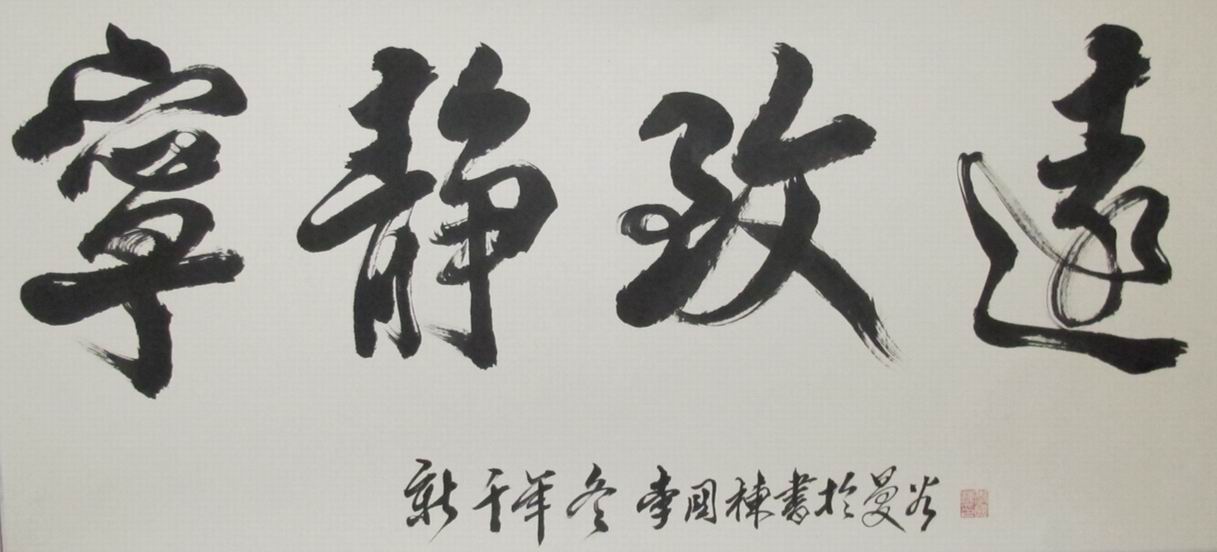 寧靜致遠
新千年冬 李國棟書於曼谷